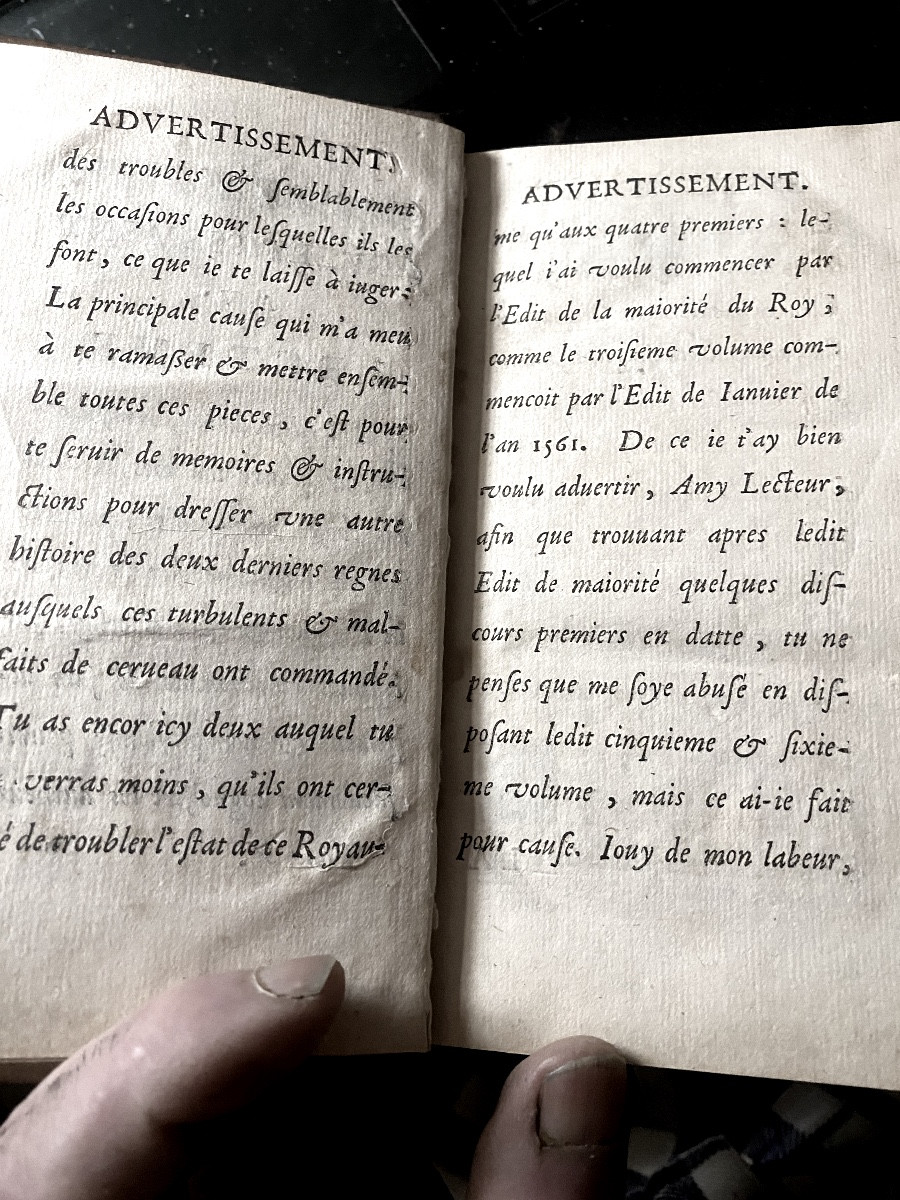 ADVERTISSEMENT.
des troubles & ſemblablement
les occaſions pour leſquelles ils les
font, ce que ie te laiſſe à iuger:
La principale cauſe qui m'a meu
à te ramaßer & mettre enſem-
ble toutes ces pieces, c'eſt pour
te ſeruir de memoires & inſtru-
ctions pour dreſſer vne autre
hiſtoire des deux derniers regnes
auſquels ces turbulents & mal-
faits de cerueau ont commandé.
Tu as encor icy deux auquel tu
verras moins, qu'ils ont cer-
é de troubler l'eſtat de ce Royau-
ADVERTISSEMENT.
me qu'aux quatre premiers : le-
quel i'ai voulu commencer par
l'Edit de la maiorité du Roy,
comme le troiſieme volume com-
mencoit par l'Edit de Ianuier de
l'an 1561. De ce ie t'ay bien
voulu aduertir, Amy Lecteur,
afin que trouuant apres ledit
Edit de maiorité quelques diſ-
cours premiers en datte, tu ne
penſes que me ſoye abuſé en diſ-
poſant ledit cinquieme & ſixie-
me volume, mais ce ai-ie fait
pour cauſe. Iouy de mon labeur,